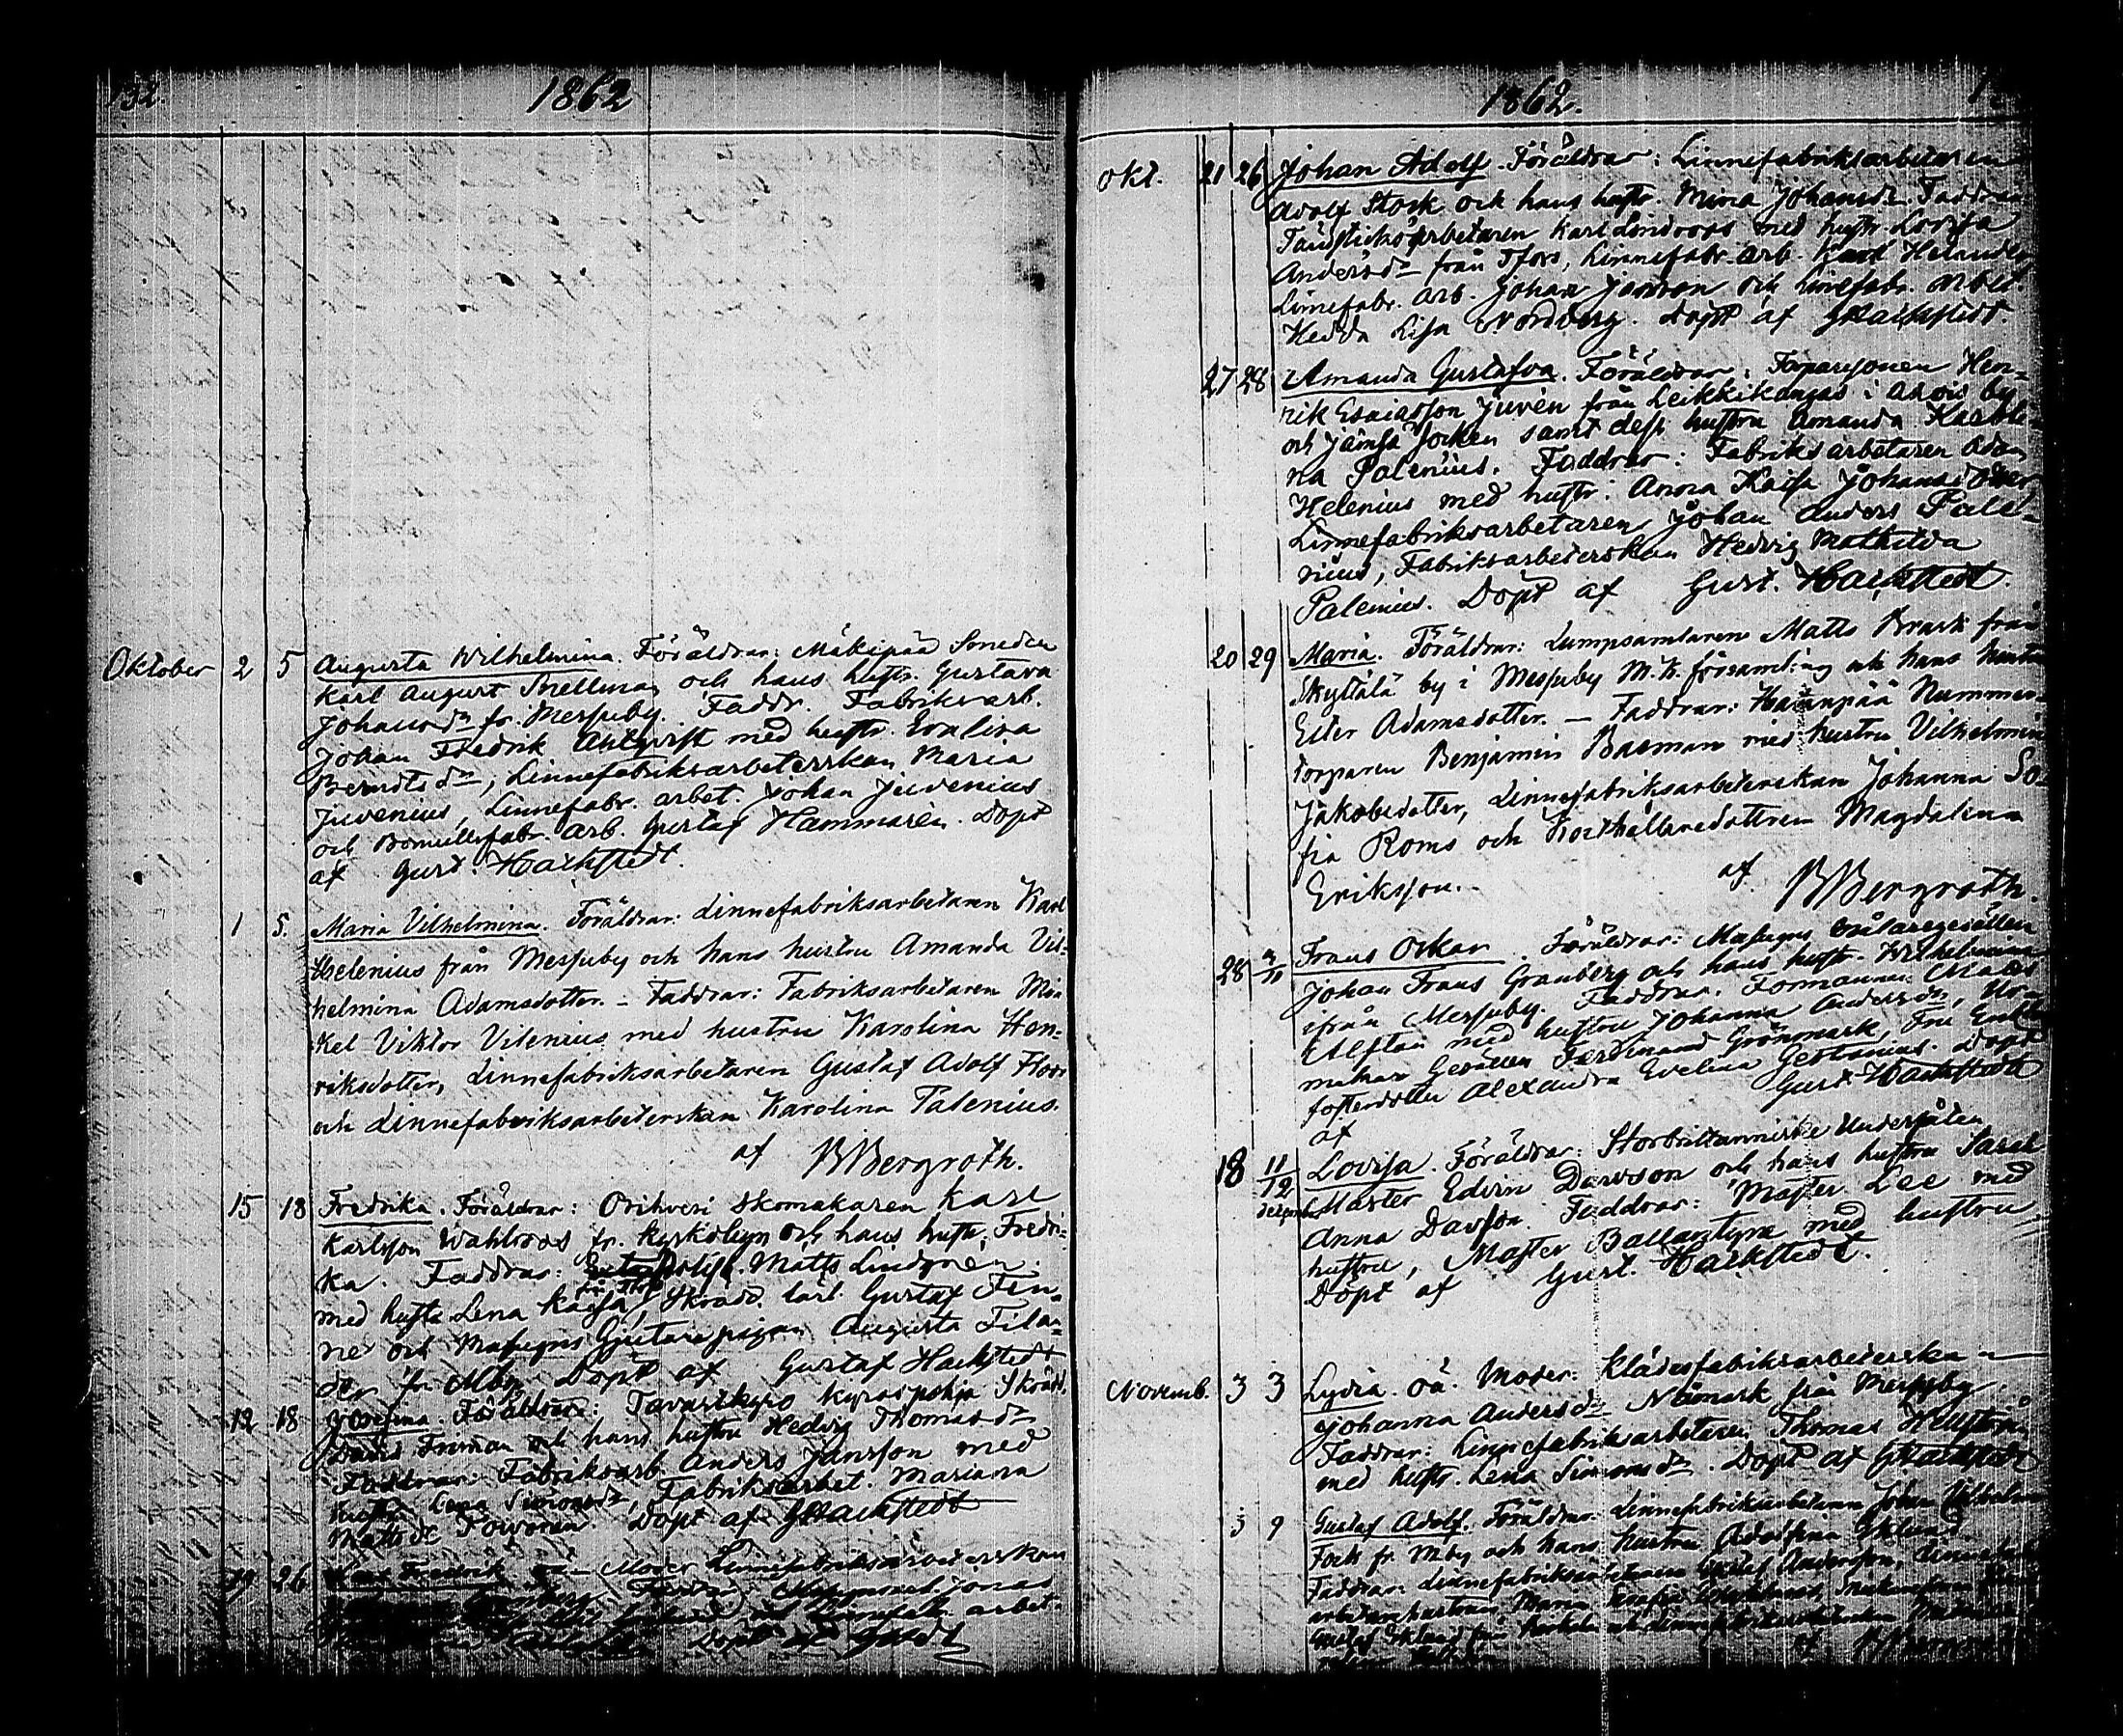 132.
1862
Oktober 2 5 Augusta Wilhelmina. Föräldrar: Mäkipää Smeden
Karl August Snellman och hans hustr. Gustava
Johansdr fr. Messuby. Faddr. Fabriksarb.
Johan Fredrik Ahlqvist med hustr. Evalina
Berndtsdr, Linnefabriksarbeterskan Maria
Juvenius, Linnefabr. arbet. Johan Juvenius
och Bomullsfabr. arb. Gustaf Hammarén. Döpt
af Gust. Hackstedt.
1 5. Maria Vilhelmina. Föräldrar: Linnefabriksarbetaren Karl
Helenius från Messuby och hans hustru Amanda Vil-
helmina Adamsdotter. – Faddrar: Fabriksarbetaren Mi
kel Viktor Vilenius med hustru Karolina Hen-
riksdotter, Linnefabriksarbetaren Gustaf Adolf Floor
och Linnefabriksarbeterskan Karolina Palenius.
af BBergroth.
15 18 Fredrika. Föräldrar: Orihvesi Skomakaren Karl
Karlsson Wahlroos fr. och hans hustr. Fredri-
ka. Faddrar: Matts Lindgren
med hustr. Lena Kaisa, Skrädd. lärl. Gustaf Fin-
ne och Masugns Gjutare pigan Augusta Filan-
der fr Mby. Döpt af Gustaf Hackstedt
12 18 Josefina. Föräldrar: Tavastkyro Skrädd.
David Friman och hans hustru Hedvig Thomasdr
Faddrar: Fabriksarb. Anders Jansson med
hustru Lena Simonsdr, Fabriksarbet. Mariana
Mattsdr Toivonen. Döpt af GHackstedt
19 26 Fredrik oä Moder Linnefabriksarbeterskan
Jonas
Linnefabr. arbet.
Döpt af
1862.
Okt. 21 26 Johan Adolf. Föräldrar: Linnefabriksarbetaren
Adolf Stork och hans hustr. Mina Johansdr. Faddrar
Tändsticksarbetaren Karl Lindroos med hustr. Lovisa
Andersdr från Tfors, Linnefabr. arb. Karl Helander
Linnefabr. arb. Johan Jansson och Linnefabr. arbet.
Hedda Lisa Nordberg. Döpt af GHackstedt.
27 28 Amanda Gustafva. Föräldrar: Torparesonen Hen-
rik Esaiasson Juvén från Leikkikangas i by
och Jämsä Socken samt dess hustru Amanda Karoli-
na Palenius. Faddrar: Fabriksarbetaren Adam
Helenius med hustr: Anna Kaisa Johansdotter
Linnefabriksarbetaren Johan Anders Pale-
nius, Fabriksarbeterskan Hedvig Mathilda
Palenius. Döpt af Gust. Hackstedt.
20 29 Maria. Föräldrar: Lumpsamlaren Matts Brask från
Skyttälä by i Messuby M.K. församling och hans hustru
Ester Adamsdotter. – Faddrar: Haapää Nummen-
torparen Benjamin Basman med hustru Vilhelmina
Jakobsdotter, Linnefabriksarbeterskan Johanna So-
fia Roms och Magdalena
Eriksson.
af BBergroth.
28 9/11 Frans Oskar. Föräldrar: Masugns målaregesällen
Johan Frans Granberg och hans hustr. Wilhelmina
ifrån Messuby. Faddrar. Formannen Matts
Alftan med hustru Johanna Andersdr, Ur-
makare Gesällen Ferdinand Grönmark, Fru
fosterdotter Alexandra Evelina Döpt
af Gust. Hackstedt
18 11/12 december Lovisa. Föräldrar: Storbrittanniske Undersåten
Master Edvin Davson och hans hustru Sarah
Anna Davson. Faddrar: Master Lee med
hustru, Master Ballantyne med hustru
Döpt af Gust. Hackstedt.
Novemb. 3 3 Lydia. oä. Moder: Klädesfabriksarbeterska
Johanna Andersdr Nämark från Messuby
Faddrar: Linnefabriksarbetaren Thomas Wellström
med hustr. Lena Simonsdr. Döpt af GHackstedt
5 9 Gustaf Adolf. Föräldrar: Linnefabriksarbetaren Johan Vilhelm
Fock fr. Mby och hans hustru Adolfina Eklund.
Faddrar: Linnefabriksarbetaren Gustaf Andersson,
Maria
Gustaf Eklund
af BBergroth